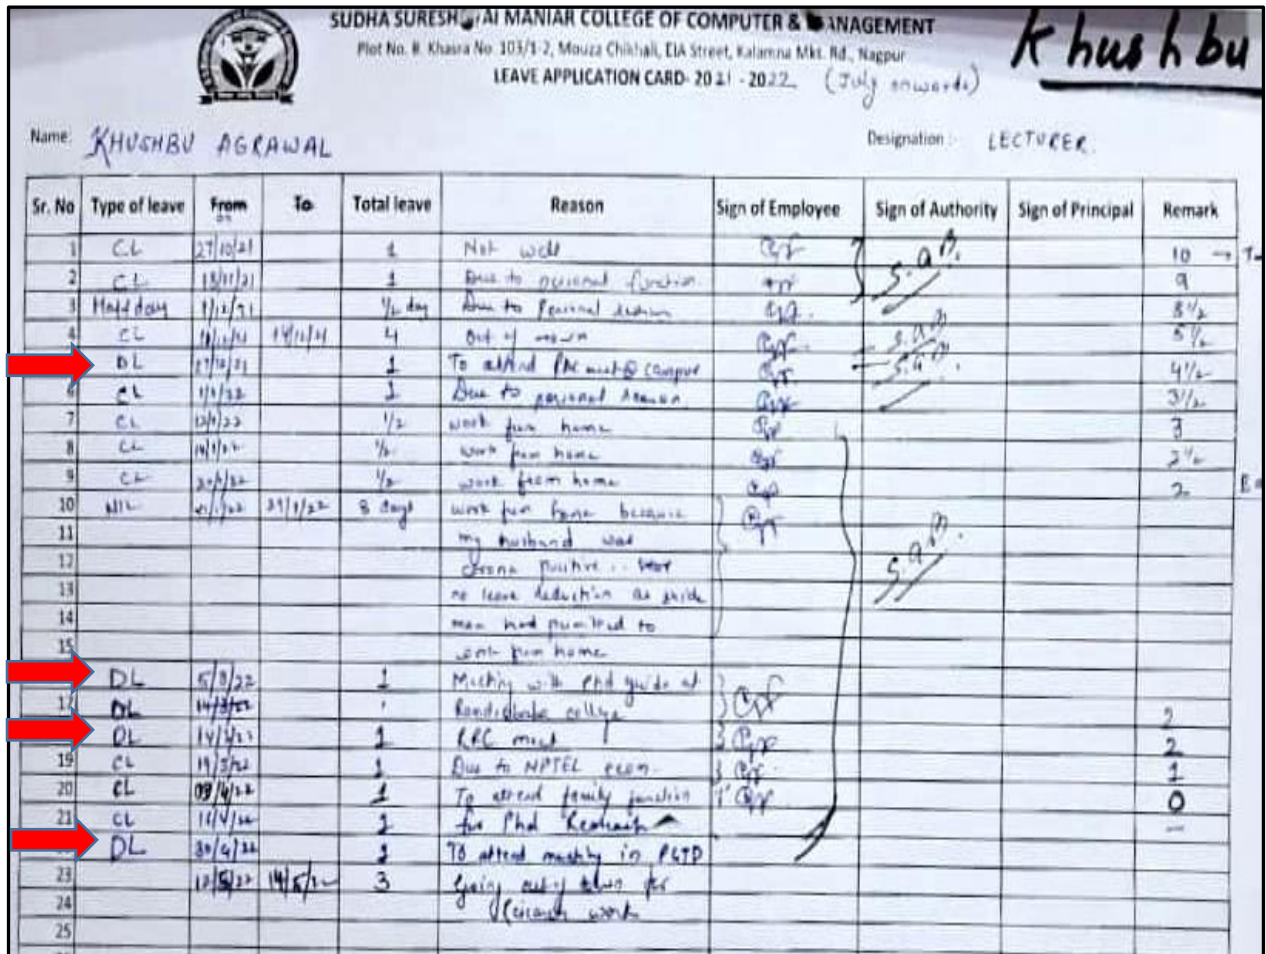 SUDHA SURESH AI MANIAR COLLEGE OF COMPUTER & MANAGEMENT
Plot No. 8. Khasra No. 103/1-2, Mouza Chikhali, EIA Street, Kalamna Mkt. Rd., Nagpur
LEAVE APPLICATION CARD- 2021 - 2022 (July onwards)
Khushbu
Name: KHUSHBU AGRAWAL Designation :- LECTURER.
Sr. No Type of leave From To Total leave Reason Sign of Employee Sign of Authority Sign of Principal Remark
1 CL 27/10/21 1 Not well 10 →
2 CL 13/11/21 1 Due to personal function 9
3 Half day 1/2 day Due to Personal 8 1/2
4 CL 14/12/21 4 Out of 5 1/2
DL 27/12/21 1 To attend meet @ campus 4 1/2
6 CL 1/1/22 1 Due to personal reason 3 1/2
7 CL 1/2 work from home 3
8 CL 1/2 work from home 2 1/2
9 CL 1/2 work from home 2
10 NIL 29/1/22 8 days work from home because
11 my husband was
12 corona positive
13 no leave deduction as
14 mam had permitted to
15 work from home
DL 5/3/22 1 Meeting with Phd guide at
17 DL 14/3/22 college 2
DL 1 RRC meet 2
19 CL 19/3/22 1 Due to NPTEL exam. 1
20 CL 09/4/22 1 To attend family function 0
21 CL 16/4/22 1 for Phd Research —
DL 30/4/22 1 To attend meeting in PGTD
23 12/5/22 14/5/22 3 Going out of town for
24 research work
25